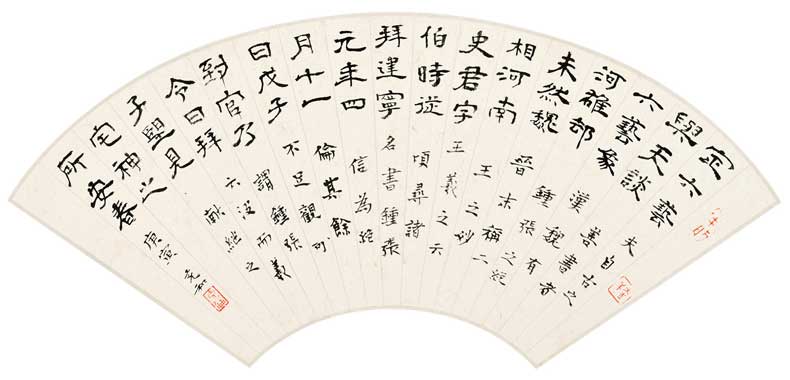 定六藝
夫自古之
與天談
善書者
六藝象
漢魏有
河雒郤
鍾張之絕
未然魏
晉末稱二
相河南
王之妙
史君字
王羲之云
伯時從
頃尋諸
拜建寧
名書鍾張
元年四
信為絕
月十一
倫其餘
日戊子
不足觀可
到官乃
謂鍾張
令日拜
云沒而羲
子望見
獻繼之
宅神之
所安春
庚寅